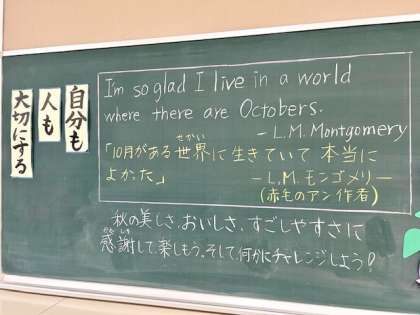 自分も
人も
大切にする
I'm so glad I live in a world
where there are Octobers.
— L.M. Montgomery
「10月がある世界に生きていて本当に
せかい
よかった」
— L.M. モンゴメリー
(赤毛のアン作者)
秋の美しさ、おいしさ、すごしやすさに
感謝して、楽しもう。そして、何かにチャレンジしよう!
かんしゃ